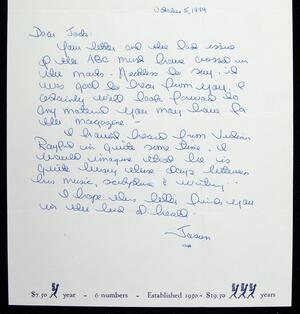 October 5, 1994
Dear Jack:
Your letter and the last issue
of the ABC must have crossed in
the mails. Needless to say, it
was good to hear from you. I
certainly will look forward to
any material you may have for
the magazine -
I haven't heard from
in quite some time. I
would imagine that he is
quite busy these days between
his music, sculpture & writing.
I hope this letter finds you
in the best of health.
Jason
$7.50 year - 6 numbers - Established 1950 - $19.50 years